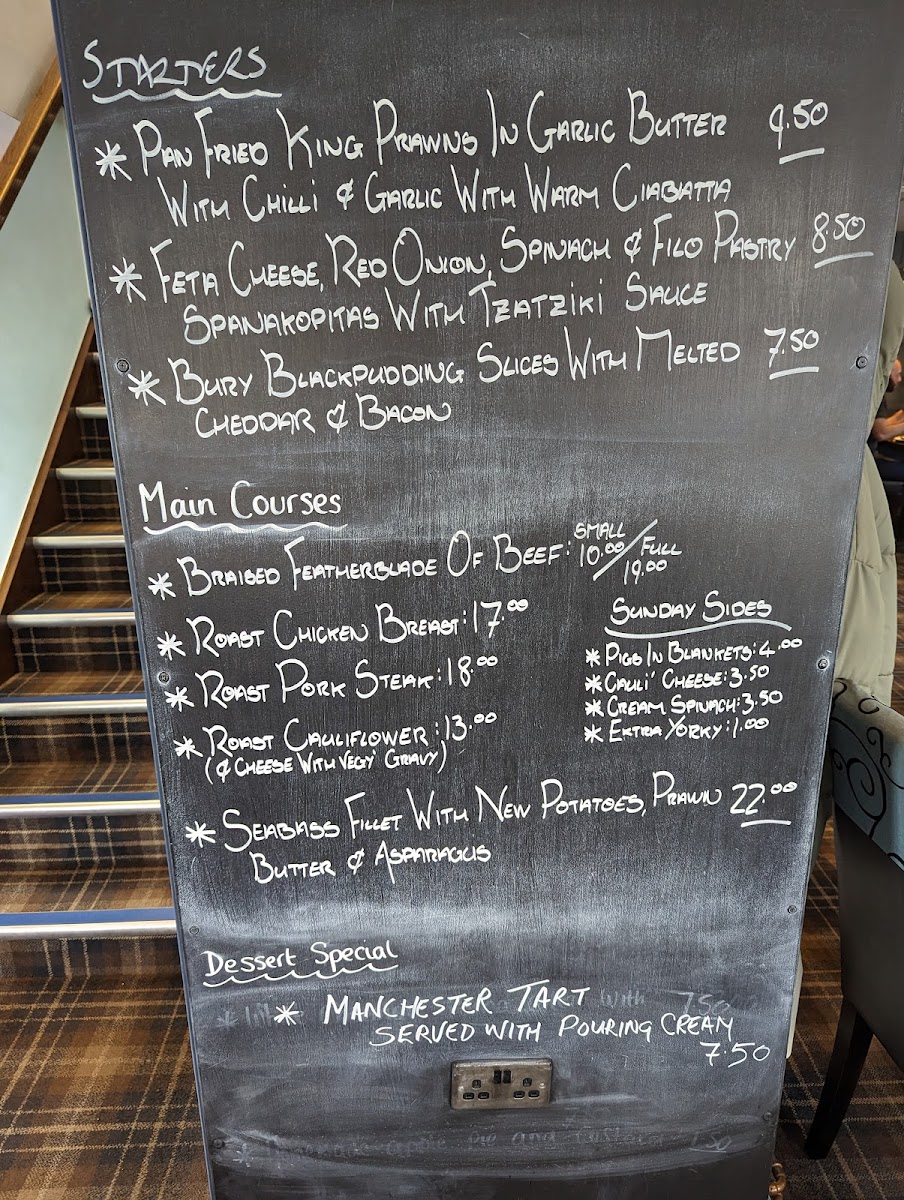 STARTERS
* PAN FRIED KING PRAWNS IN GARLIC BUTTER 9.50
WITH CHILLI & GARLIC WITH WARM CIABATTA
* FETA CHEESE, RED ONION, SPINACH & FILO PASTRY 8.50
SPANAKOPITAS WITH TZATZIKI SAUCE
* BURY BLACKPUDDING SLICES WITH MELTED 7.50
CHEDDAR & BACON
Main Courses
* BRAISED FEATHERBLADE OF BEEF: SMALL 10.00/FULL 19.00
* ROAST CHICKEN BREAST: 17.00
* ROAST PORK STEAK: 18.00
* ROAST CAULIFLOWER: 13.00
(& CHEESE WITH VEGY' GRAVY)
SUNDAY SIDES
* PIGS IN BLANKETS: 4.00
* CAULI' CHEESE: 3.50
* CREAM SPINACH: 3.50
* EXTRA YORKY: 1.00
* SEABASS FILLET WITH NEW POTATOES, PRAWN 22.00
BUTTER & ASPARAGUS
Dessert Special
* MANCHESTER TART with 7.50
SERVED WITH POURING CREAM
7.50
pie and custard